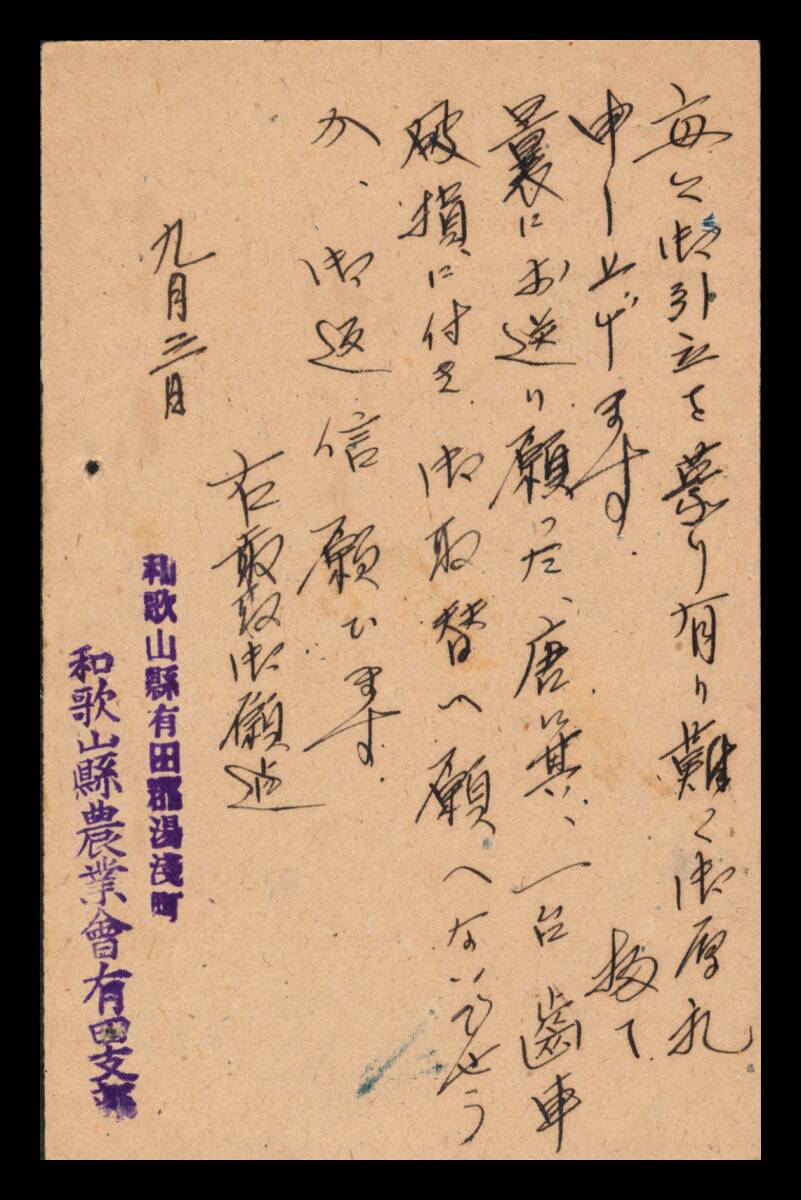 毎々御引立を蒙り有り難く御厚礼
申し上げます 扨て
曩にお送り願った、唐箕、一台 齒車
破損に付き 御取替へ願へないでせう
か、御返信願ひます。
右取敢御願迄
九月三日
和歌山縣有田郡湯淺町
和歌山縣農業會有田支部